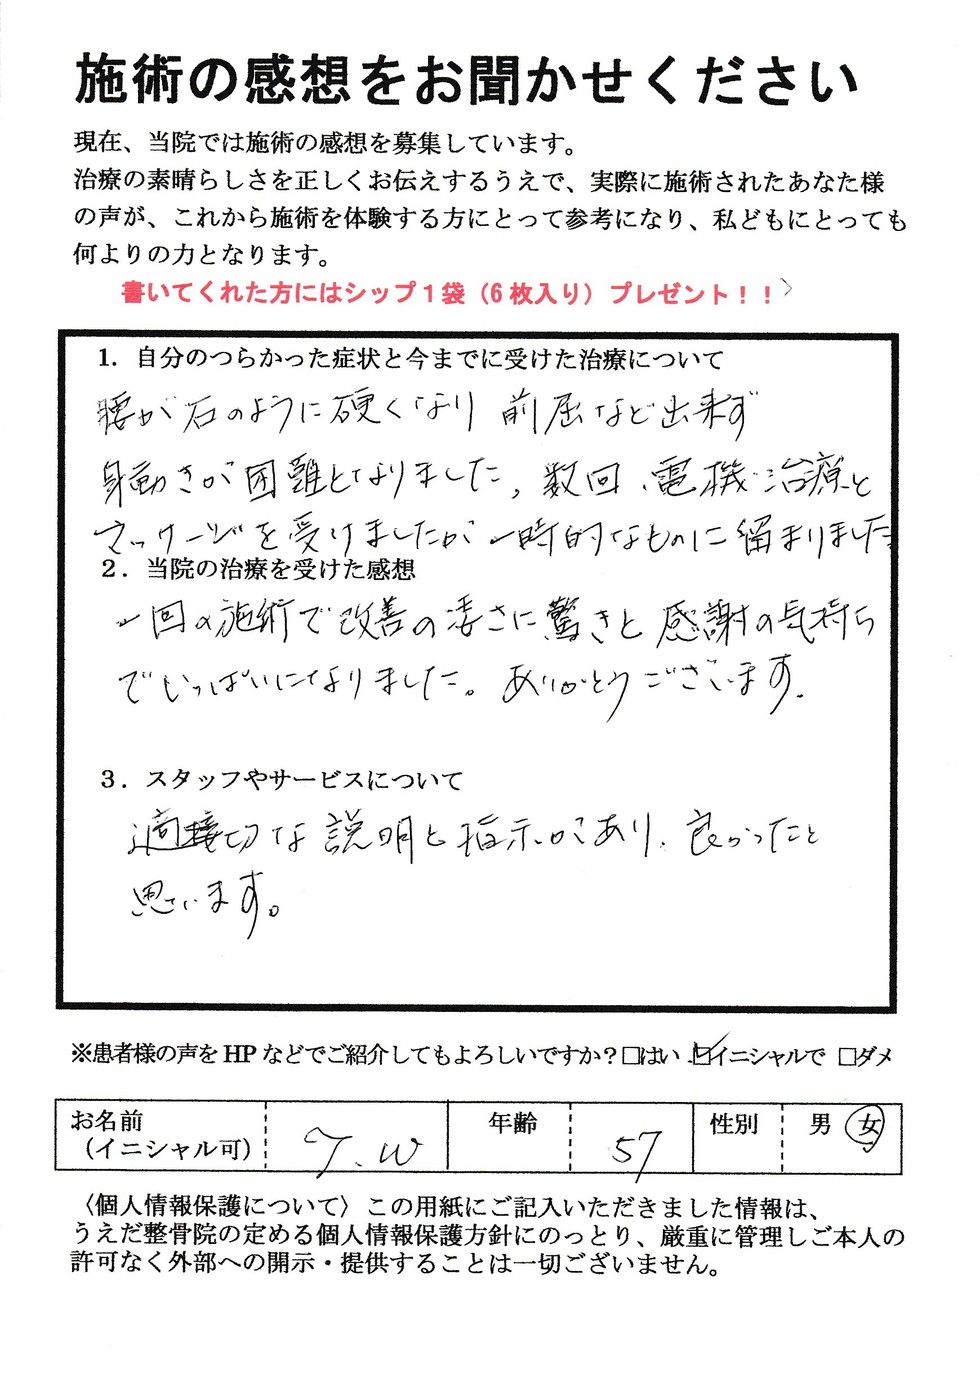 施術の感想をお聞かせください
現在、当院では施術の感想を募集しています。
治療の素晴らしさを正しくお伝えするうえで、実際に施術されたあなた様
の声が、これから施術を体験する方にとって参考になり、私どもにとっても
何よりの力となります。
書いてくれた方にはシップ１袋（6 枚入り）プレゼント！！
1. 自分のつらかった症状と今までに受けた治療について
腰が石のように硬くなり 前屈など出来ず
身動きが困難となりました, 数回、電機治療と
マッサージを受けましたが一時的なものに留まりました
２. 当院の治療を受けた感想
一回の施術で改善の凄さに驚きと感謝の気持ち
でいっぱいになりました。ありがとうございます.
３. スタッフやサービスについて
適切な説明と指示があり、良かったと
思います。
※患者様の声を HP などでご紹介してもよろしいですか？□はい ☑イニシャルで □ダメ
お名前 年齢 性別 男 女
（イニシャル可） T.W 57
〈個人情報保護について〉この用紙にご記入いただきました情報は、
うえだ整骨院の定める個人情報保護方針にのっとり、厳重に管理しご本人の
許可なく外部への開示・提供することは一切ございません。